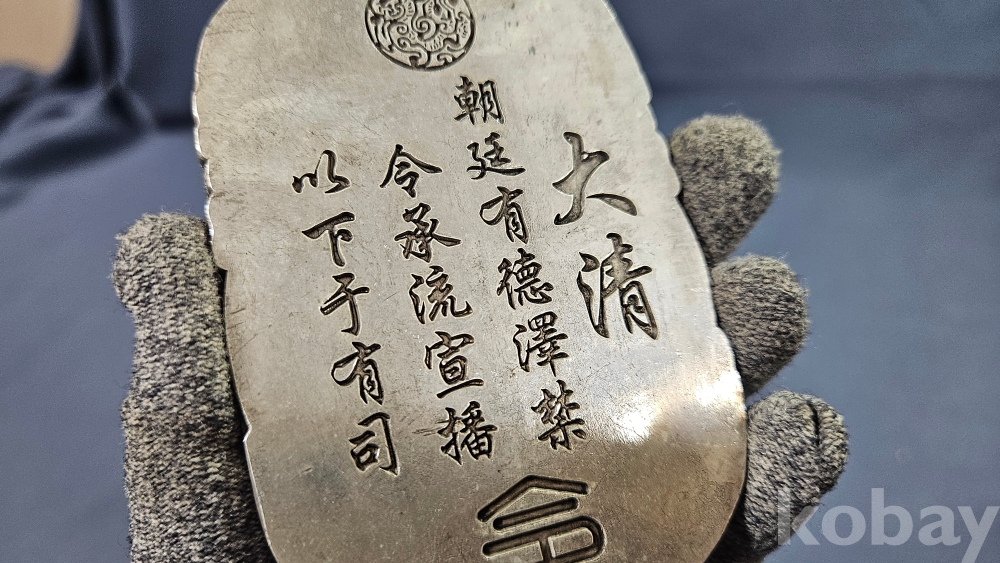 大清
朝廷有德澤禁
令承流宣播
以下于有司
令
kobay